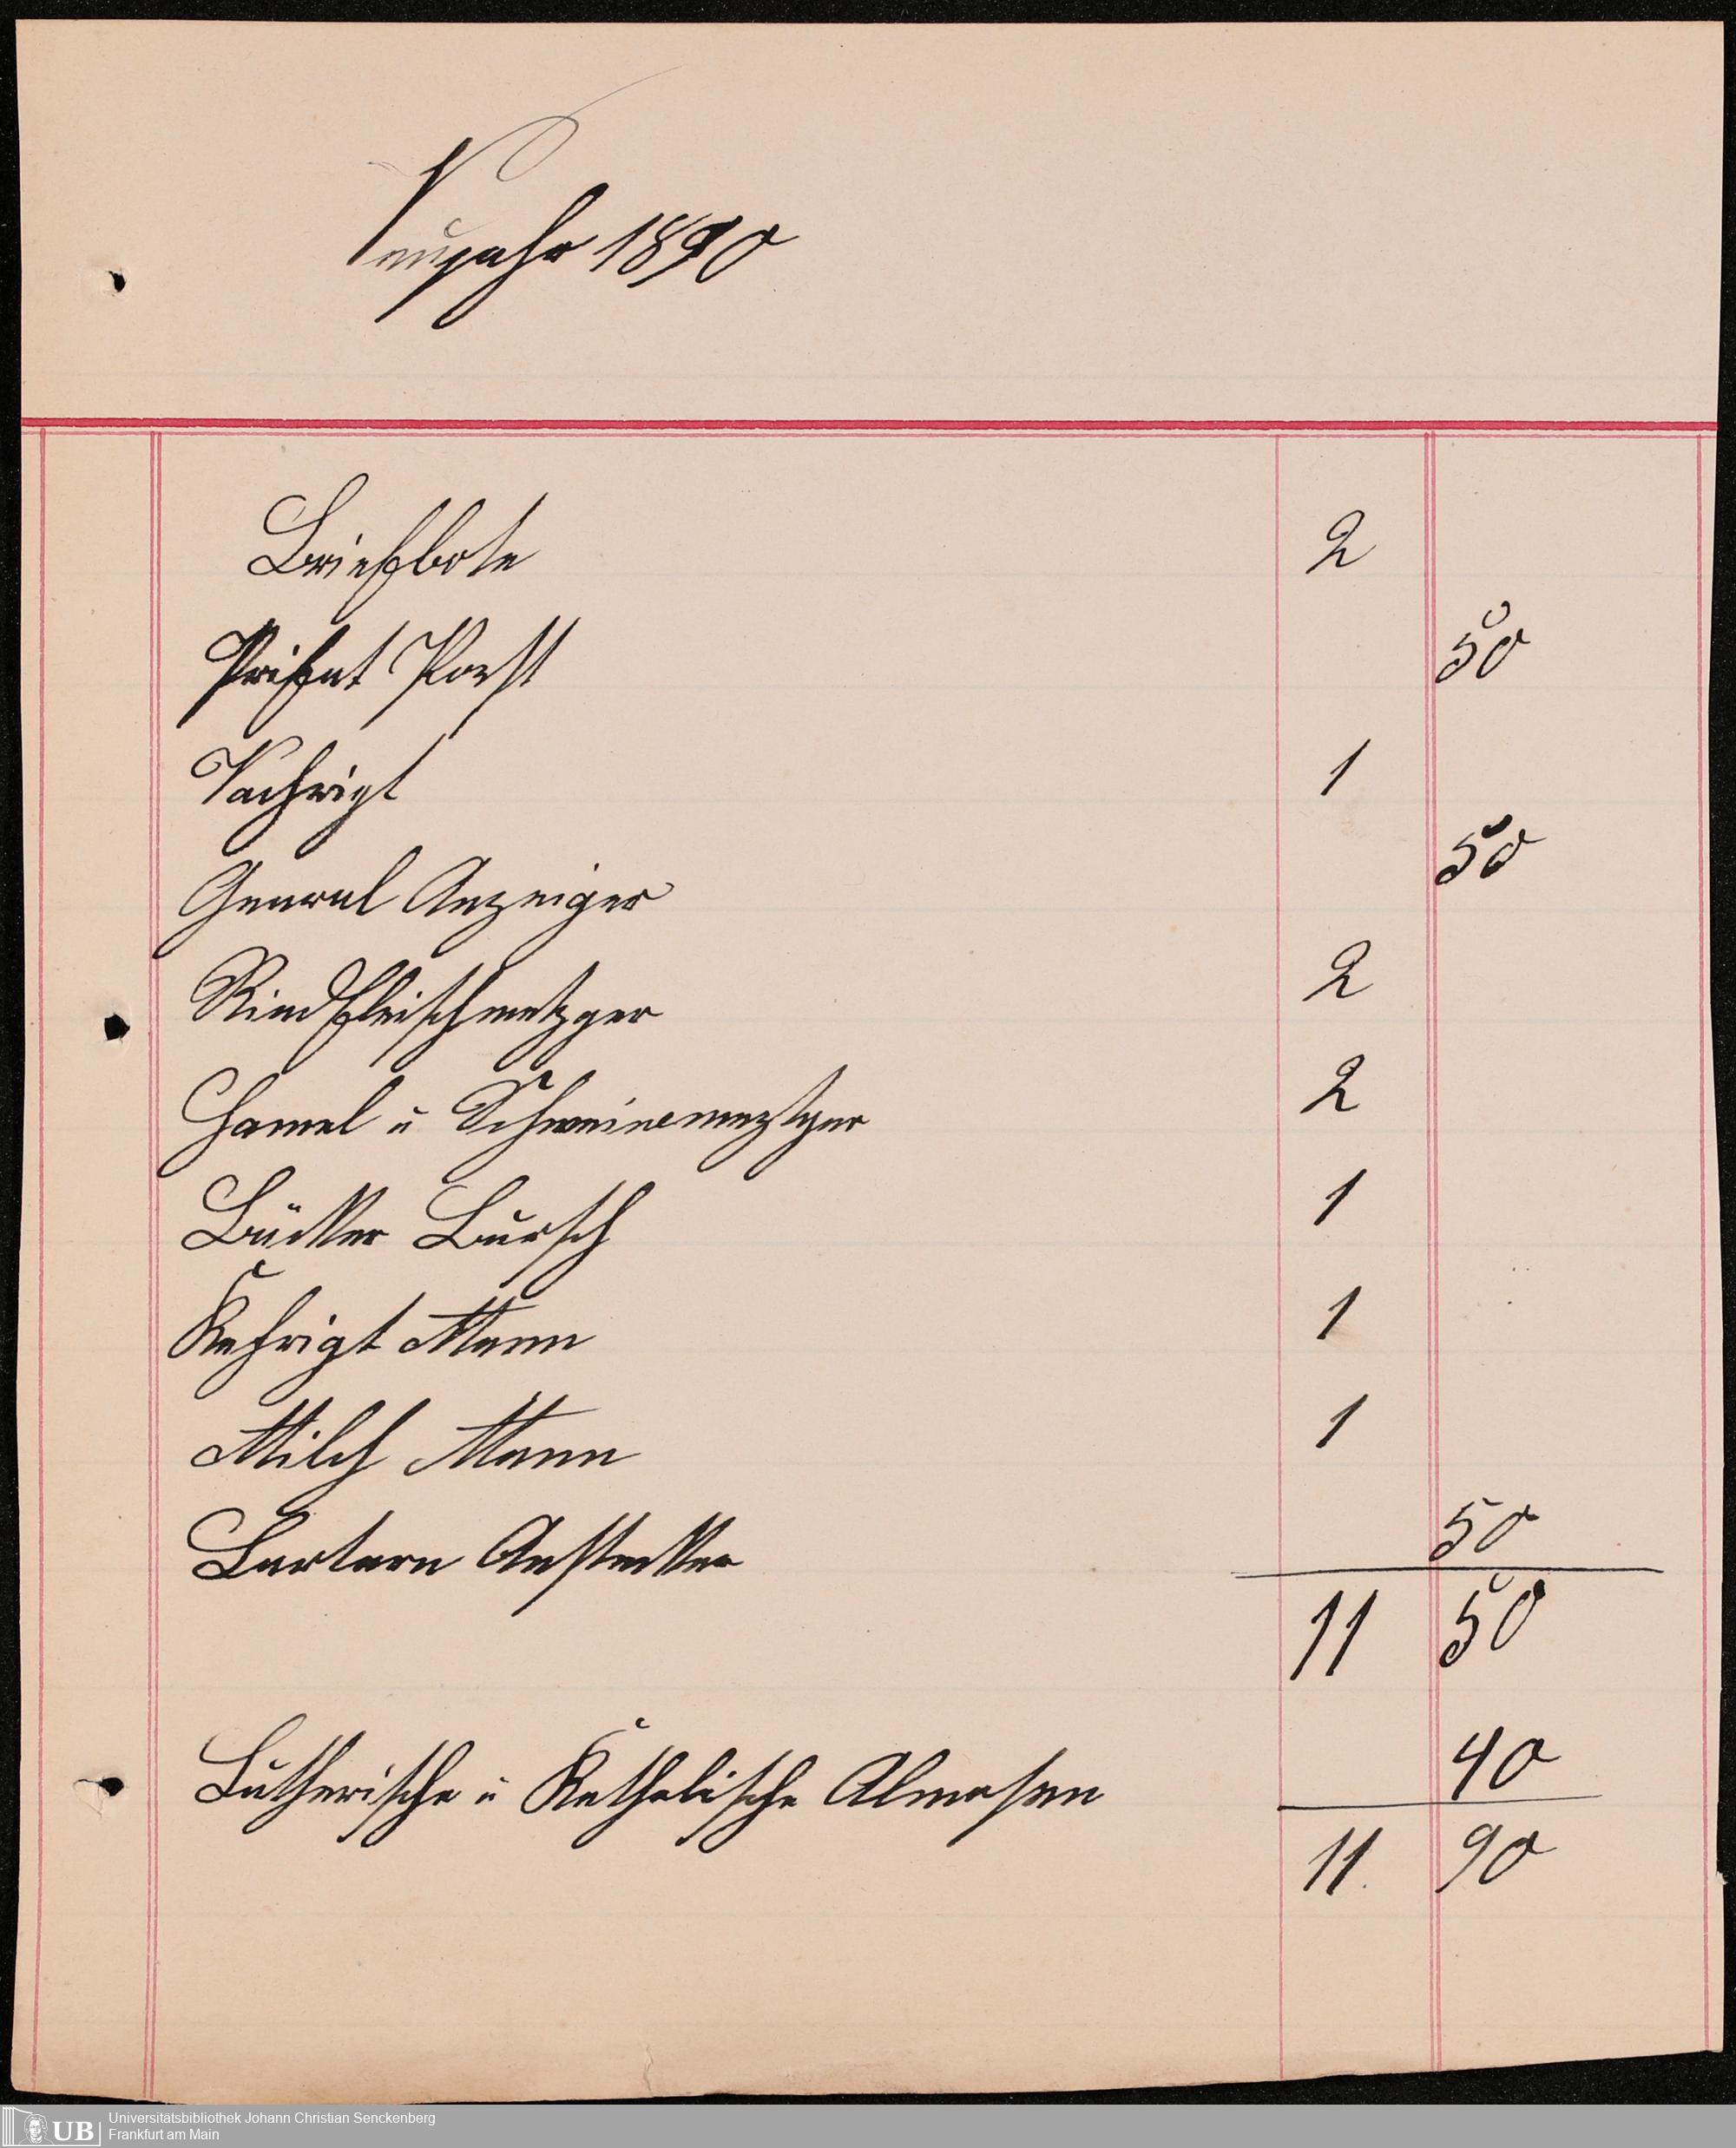 Neujahr 1890
Briefbote 2
Prifat Post 50
Nachrigt 1
General Anzeiger 50
Rindfleischmetzger 2
Hamel u Schweinemeztger 2
Bäcker Bursch 1
Kehrigt Mann 1
Milch Mann 1
Lartern Anstecker 50
11 50
Lutherische u Katholische Almosen 40
11. 90
UB
Universitätsbibliothek Johann Christian Senckenberg
Frankfurt am Main